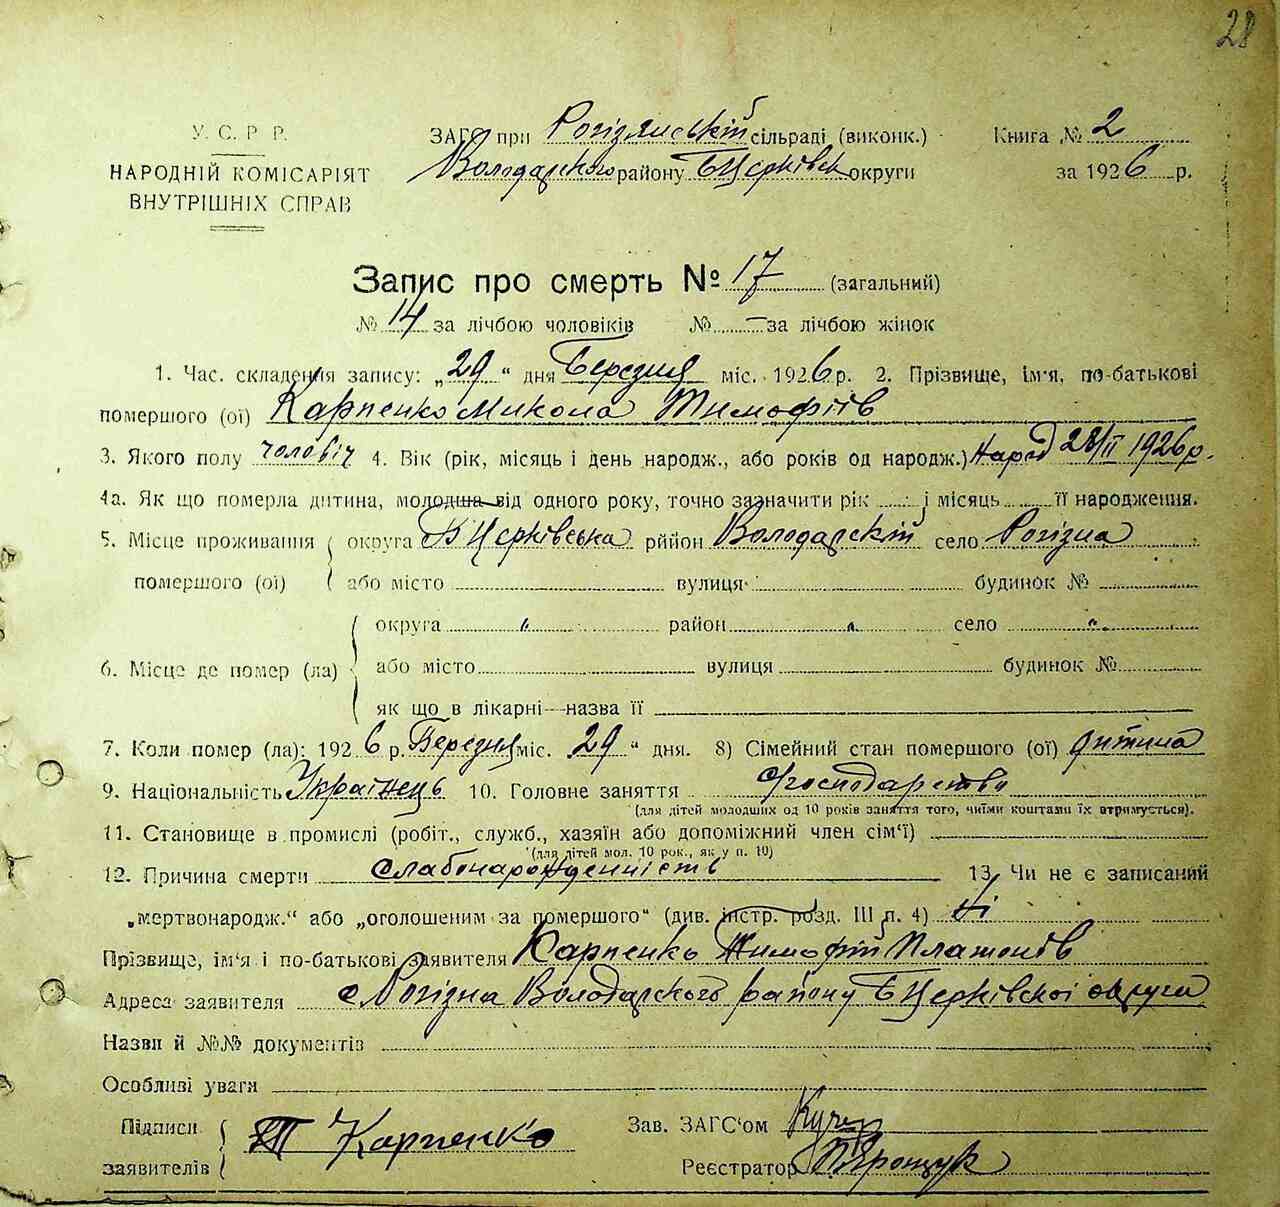 28
У. С. Р. Р.
НАРОДНІЙ КОМІСАРІЯТ
ВНУТРІШНІХ СПРАВ
ЗАГС при Рогізянській сільраді (виконк.)
Володарского району Б Церківськ округи
Книга № 2
за 1926 р.
Запис про смерть № 17 (загальний)
№ 14 за лічбою чоловіків № — за лічбою жінок
1. Час. складення запису: „29“ дня Березня міс. 1926 р. 2. Прізвище, ім'я, по-батькові
помершого (ої) Карпенко Микола Тимофіїв
3. Якого полу чоловіч 4. Вік (рік, місяць і день народж., або років од народж.) Народ 28/II 1926 р.
4а. Як що померла дитина, молодша від одного року, точно зазначити рік і місяць її народження.
5. Місце проживання округа Б Церківська район Володарскій село Рогізна
помершого (ої) або місто вулиця будинок №
округа " район " село "
6. Місце де помер (ла) або місто вулиця будинок №
як що в лікарні—назва її
7. Коли помер (ла): 1926 р. Березня міс. 29 “ дня. 8) Сімейний стан помершого (ої) дитина
9. Національність Українець 10. Головне заняття господарство
(для дітей молодших од 10 років заняття того, чиїми коштами їх втримується).
11. Становище в промислі (робіт., служб., хазяїн або допоміжний член сім'ї)
(для дітей мол. 10 рок., як у п. 10)
12. Причина смерти слабонарожденність 13. Чи не є записаний
„мертвонародж.“ або „оголошеним за помершого“ (див. інстр. розд. III п. 4) Ні
Прізвище, ім'я і по-батькові заявителя Карпенко Тимофій Платонів
Адреса заявителя с Рогізна Володарского району Б Церківскої округи
Назви й №№ документів
Особливі уваги
Підписи
заявителів
Т Карпенко
Зав. ЗАГС‘ом
Реєстратор